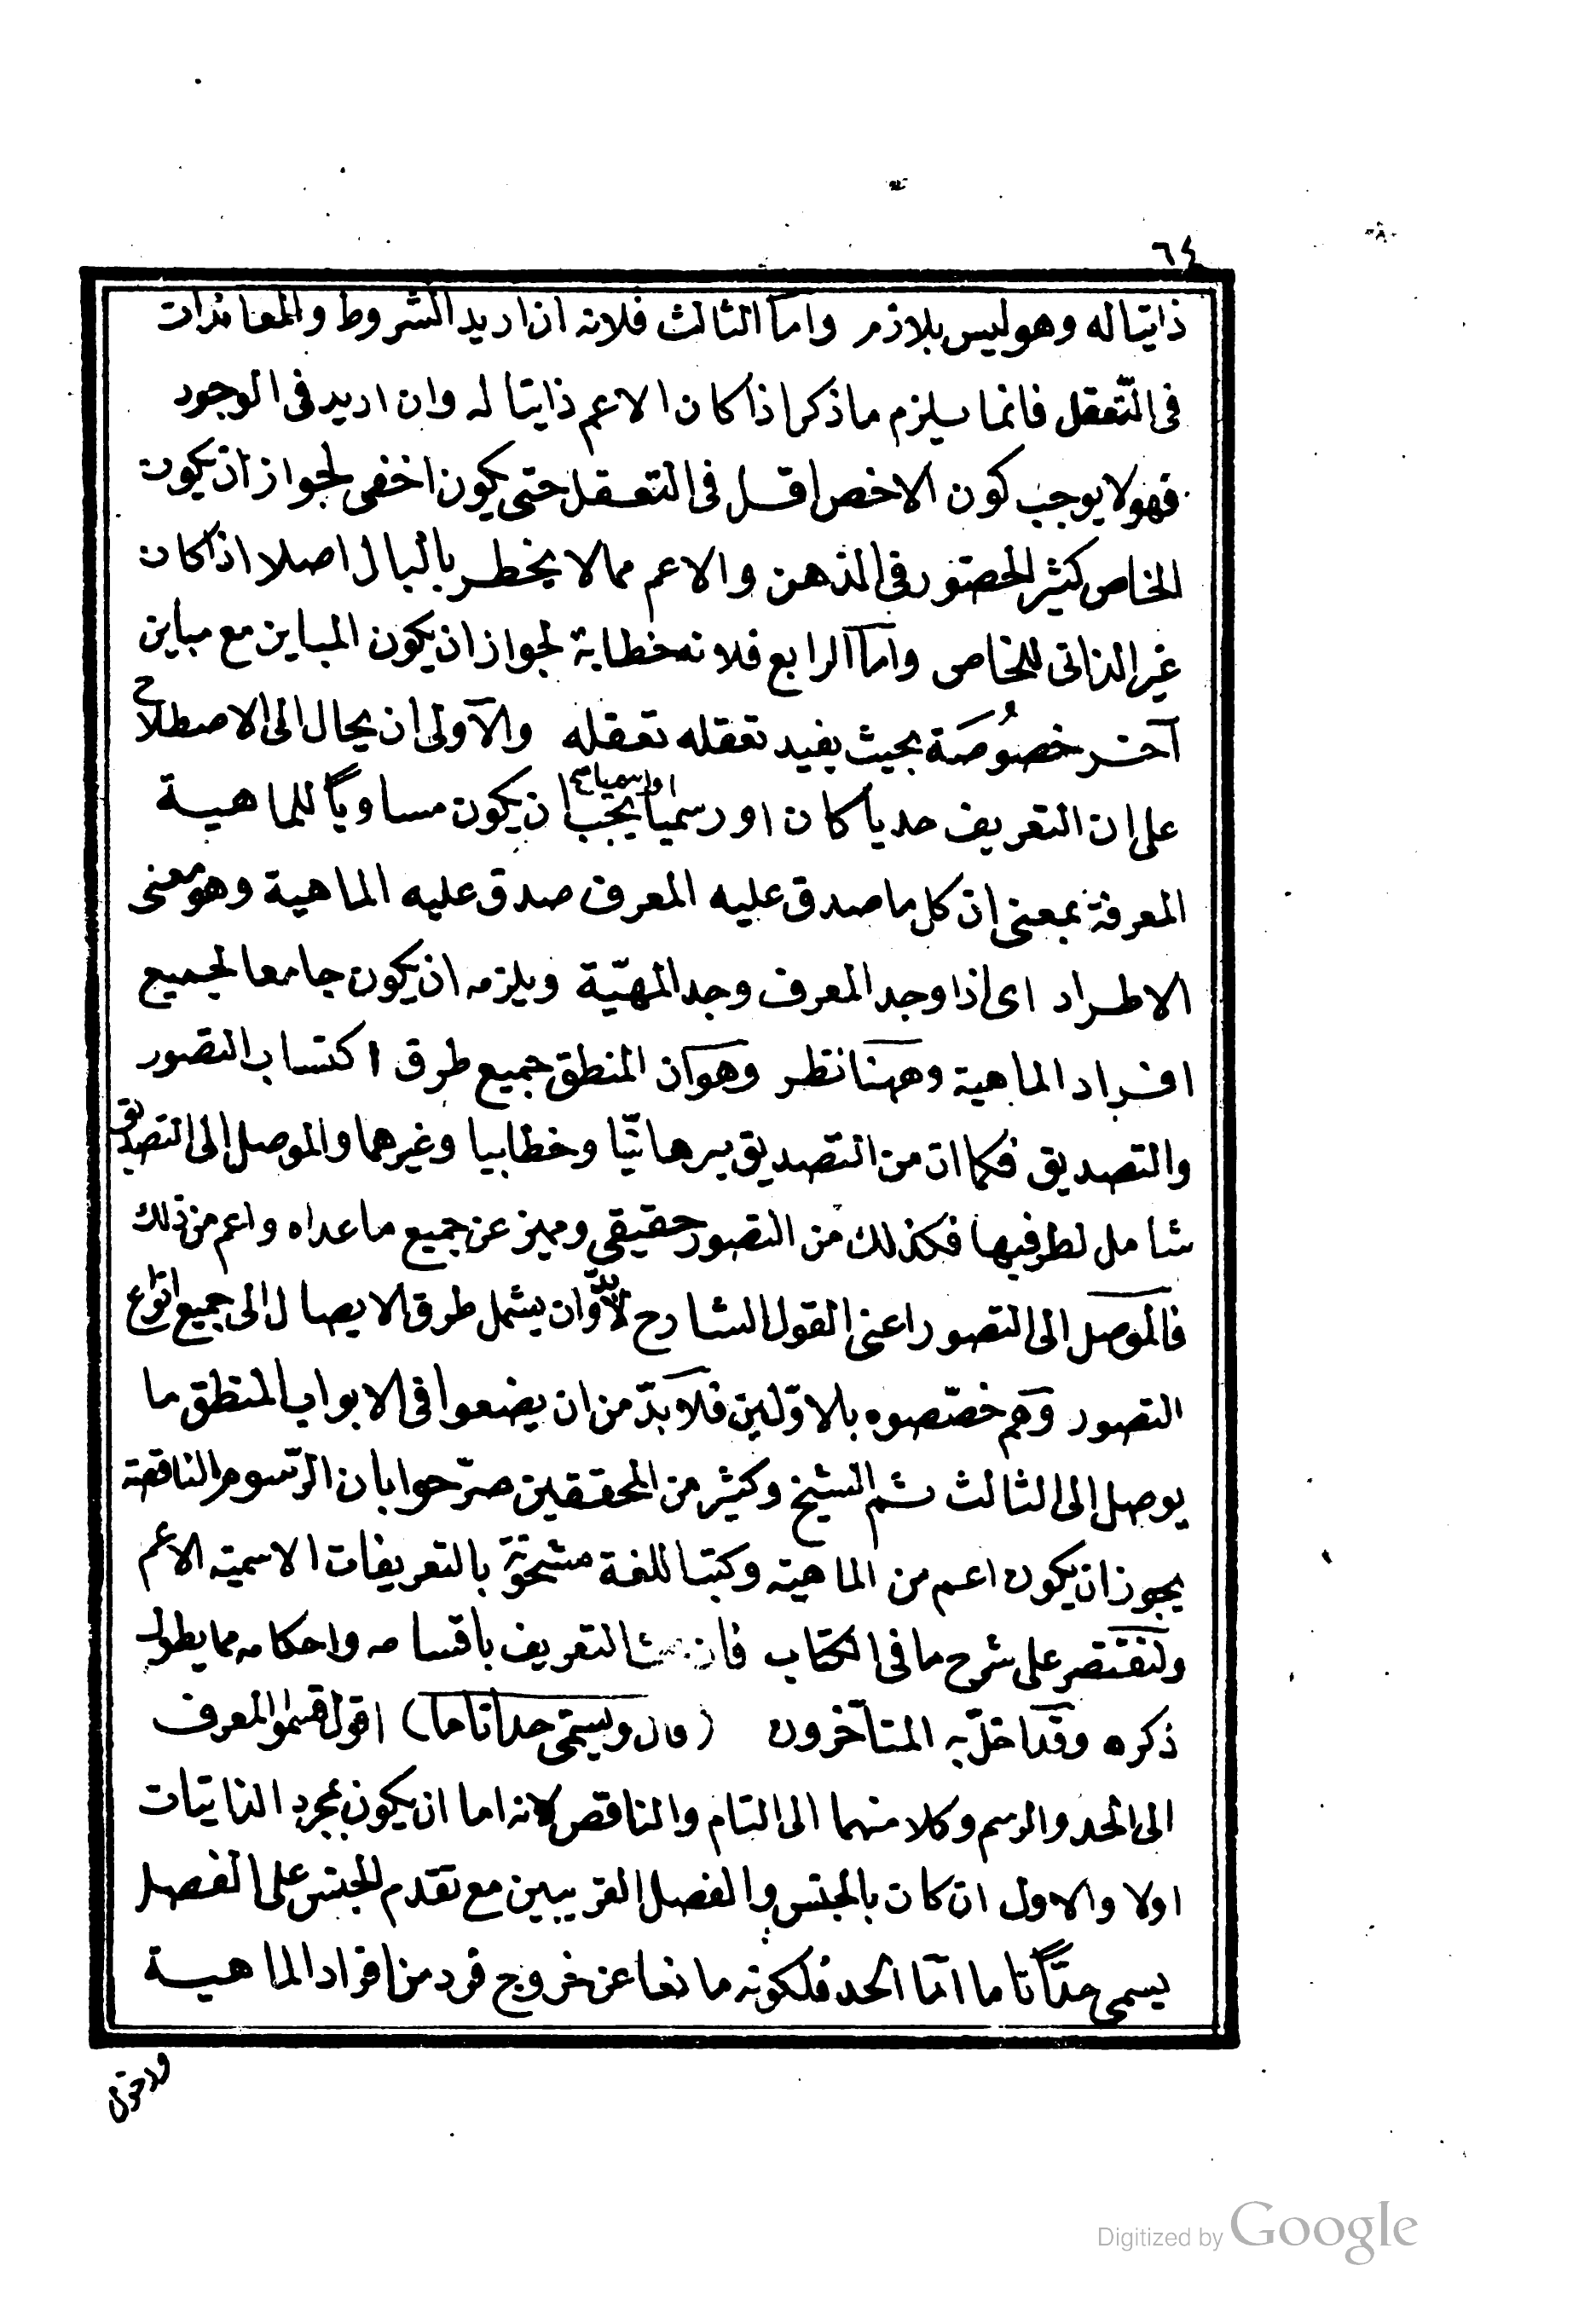 ٦٤
ذاتيا له وهو ليس بلازم واما الثالث فلانه اذا اريد الشروط والمعاندات
فى التّعقل فانما يلزم ما ذكر اذا كان الاعم ذاتيا له وان اريد فى الوجود
فهو لا يوجب كون الاخص اقل فى التعقل حتى يكون اخفى لجواز ان يكون
الخاص كثير الحضور فى الذهن والاعم مما لا يخطر بالبال اصلا اذا كان
غير الذاتى للخاص واما الرابع فلانه خطابة لجواز ان يكون المباين مع مباين
آخر خصُوصَة بحيث يفيد تعقله تعقله والآولى ان يحال الى الاصطلاح
على ان التعريف حديا كان او رسميا او اسميا يجب ان يكون مساوياً للماهية
المعرفة بمعنى ان كل ما صدق عليه المعرف صدق عليه الماهية وهو معنى
الاطراد اى اذا وجد المعرف وجد المهيّة ويلزمه ان يكون جامعا لجميع
افراد الماهية وههنا نظر وهو ان المنطق جميع طرق اكتساب التصور
والتصديق فكما ان من التصديق برهانيّا وخطابيا وغيرهما والموصل الى التصديق
شامل لطرفيها فكذلك من التصور حقيقى ومميز عن جميع ما عداه واعم من ذلك
فالموصل الى التصور اعنى القول الشارح لابدّ وان يشمل طرق الايصال الى جميع انواع
التصور وهم خصّصوه بالاوّلين فلا بدّ من ان يضعوا فى الابواب المنطق ما
يوصل الى الثالث ثم الشيخ وكثير من المحققين صرّحوا بان الرّسوم الناقصة
يجوز ان يكون اعم من الماهية وكتب اللغة مشحونة بالتعريفات الاسمية الاعم
ولنقتصر على شرح ما فى الكتاب فان التعريف باقسامه واحكامه مما يطول
ذكره وقد اخلّ به المتآخرون (قال ويسمّى حدا تاما) اقول قسموا المعرف
الى الحد والرسم وكلا منهما الى التام والناقص لانه اما ان يكون بمجرد الذاتيات
اولا والاول ان كان بالجنس والفصل القريبين مع تقدم الجنس على الفصل
يسمى حدّاً تاما امّا الحد فلكونه مانعا عن خروج فرد من افراد الماهية
Digitized by Google